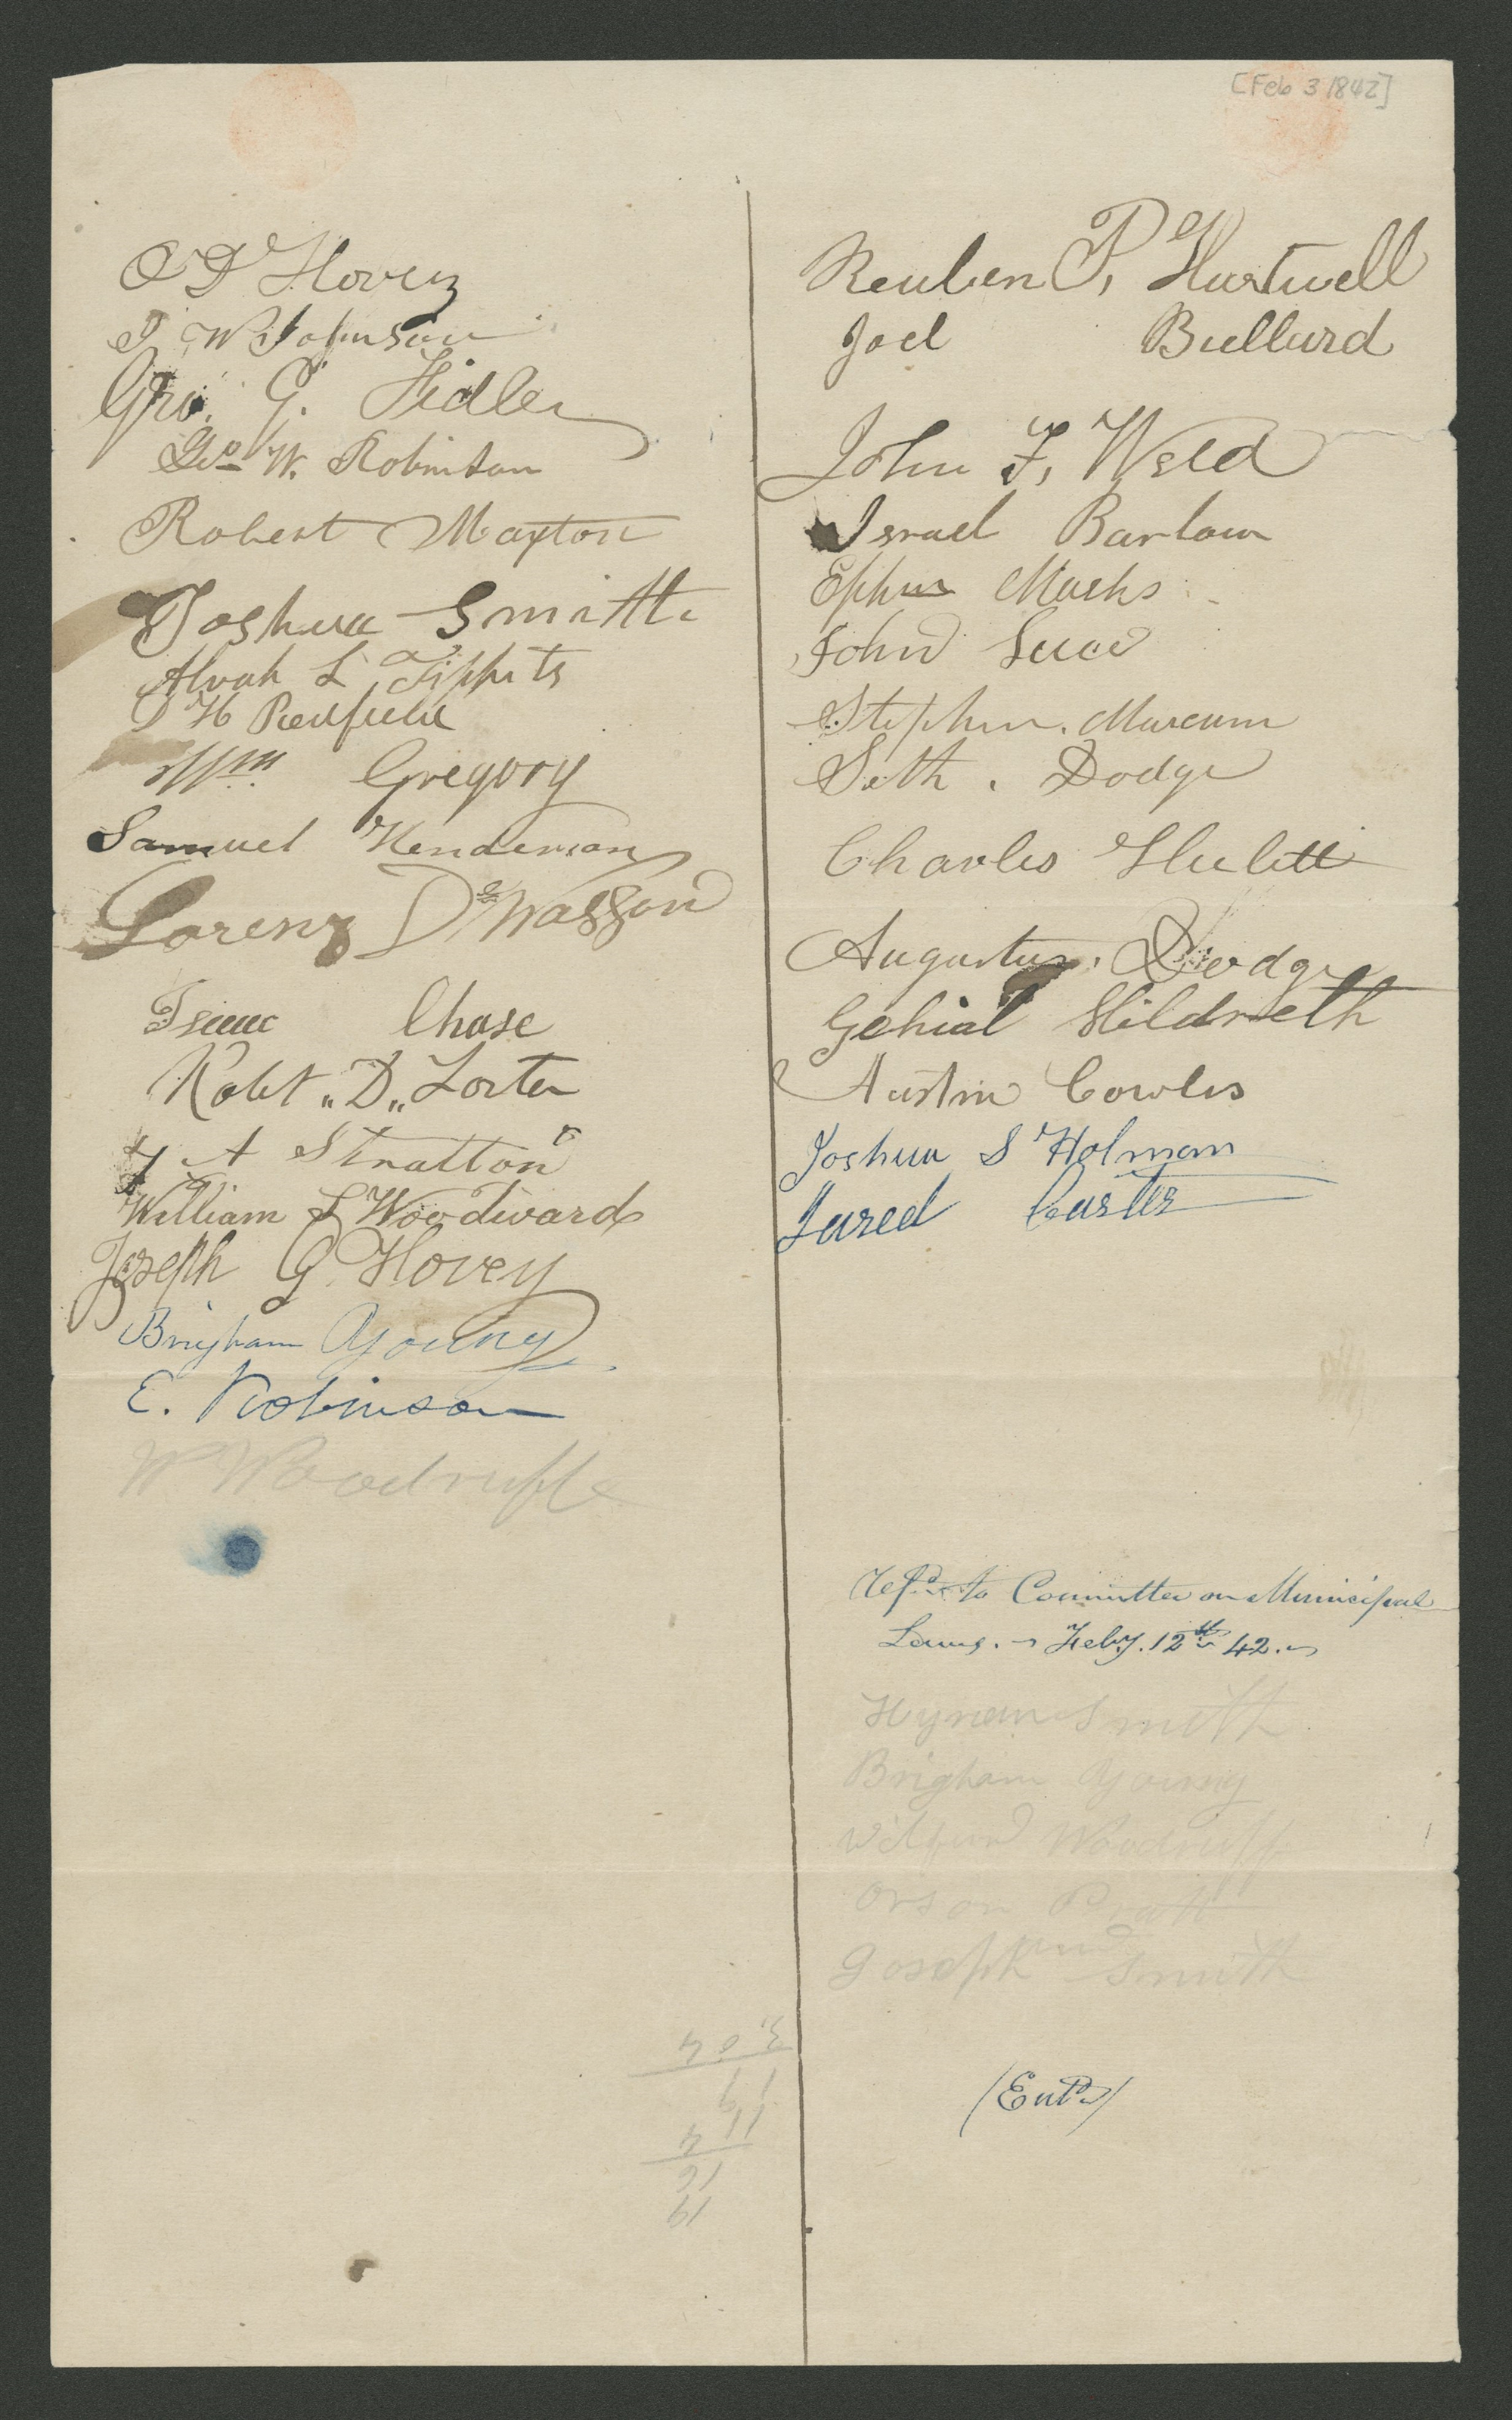 [Feb 3 1842]
O D Hovey
T W Johnson
Geo. G. Fidler
Geo W. Robinson
Robert Maxton
Joshua Smith
Alvah L Tippits
D H Redfield
Wm Gregory
Samuel Henderson
Lorenzo D Wasson
Isaac Chase
Robt „D„ Foster
A Stratton
William S Woodward
Joseph G Hovey
Brigham Young
E. Robinson
W Woodruff
Reuben P, Hartwell
Joel Bullard
John F, Weld
Israel Barlow
Ephm Marks
John Luce
Stephen. Marcum
Seth. Dodge
Charles Hulett
Augustus. Dodge
Gehial Hildreth
Austin Cowles
Joshua S Holman
Jared Carter
Refd to Committee on Municipal
Laws. Feby. 12th 42.
Hyrum Smith
Brigham Young
Wilford Woodruff
Orson Pratt
and
Joseph Smith
(Entd)
19
16
11 4
19
3.04